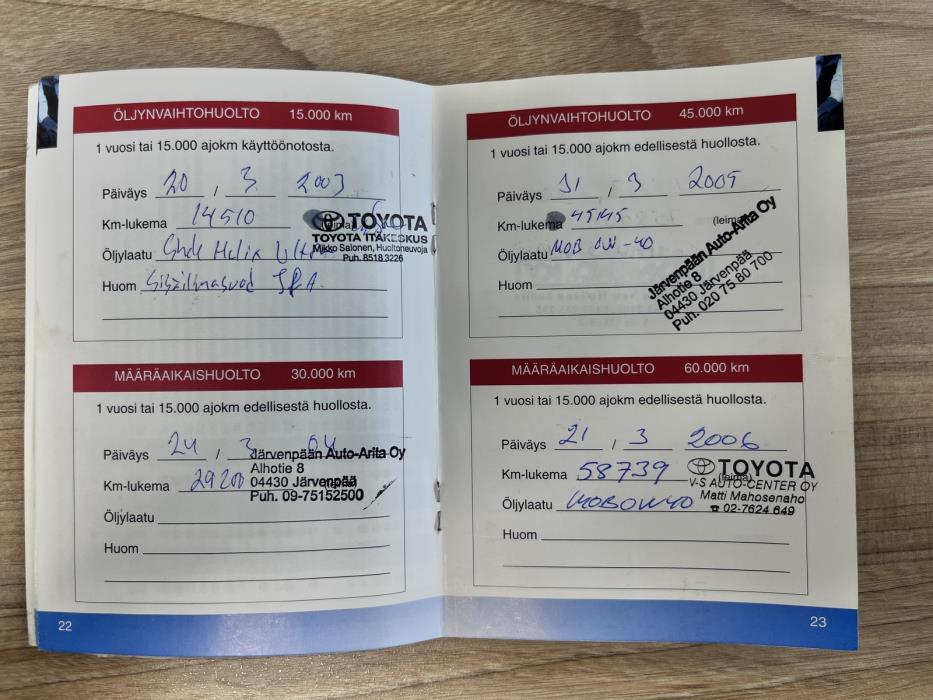 ÖLJYNVAIHTOHUOLTO 15.000 km
1 vuosi tai 15.000 ajokm käyttöönotosta.
Päiväys 20 / 3 2003
Km-lukema 14510 (leima)
TOYOTA
TOYOTA ITÄKESKUS
Mikko Salonen, Huoltoneuvoja
Puh. 8518 3226
Öljylaatu Helix
Huom
MÄÄRÄAIKAISHUOLTO 30.000 km
1 vuosi tai 15.000 ajokm edellisestä huollosta.
Päiväys 24 / 3 04
Km-lukema 29200 (leima)
Järvenpään Auto-Arita Oy
Alhotie 8
04430 Järvenpää
Puh. 09-75152500
Öljylaatu
Huom
22
ÖLJYNVAIHTOHUOLTO 45.000 km
1 vuosi tai 15.000 ajokm edellisestä huollosta.
Päiväys 31 / 3 2005
Km-lukema 45145 (leima)
Öljylaatu MOB 0W-40
Huom
Järvenpään Auto-Arita Oy
Alhotie 8
04430 Järvenpää
Puh. 020 75 80 700
MÄÄRÄAIKAISHUOLTO 60.000 km
1 vuosi tai 15.000 ajokm edellisestä huollosta.
Päiväys 21 / 3 2006
Km-lukema 58739 (leima)
TOYOTA
V-S AUTO-CENTER OY
Matti Mahosenaho
☎ 02-7624 649
Öljylaatu MOBOW40
Huom
23